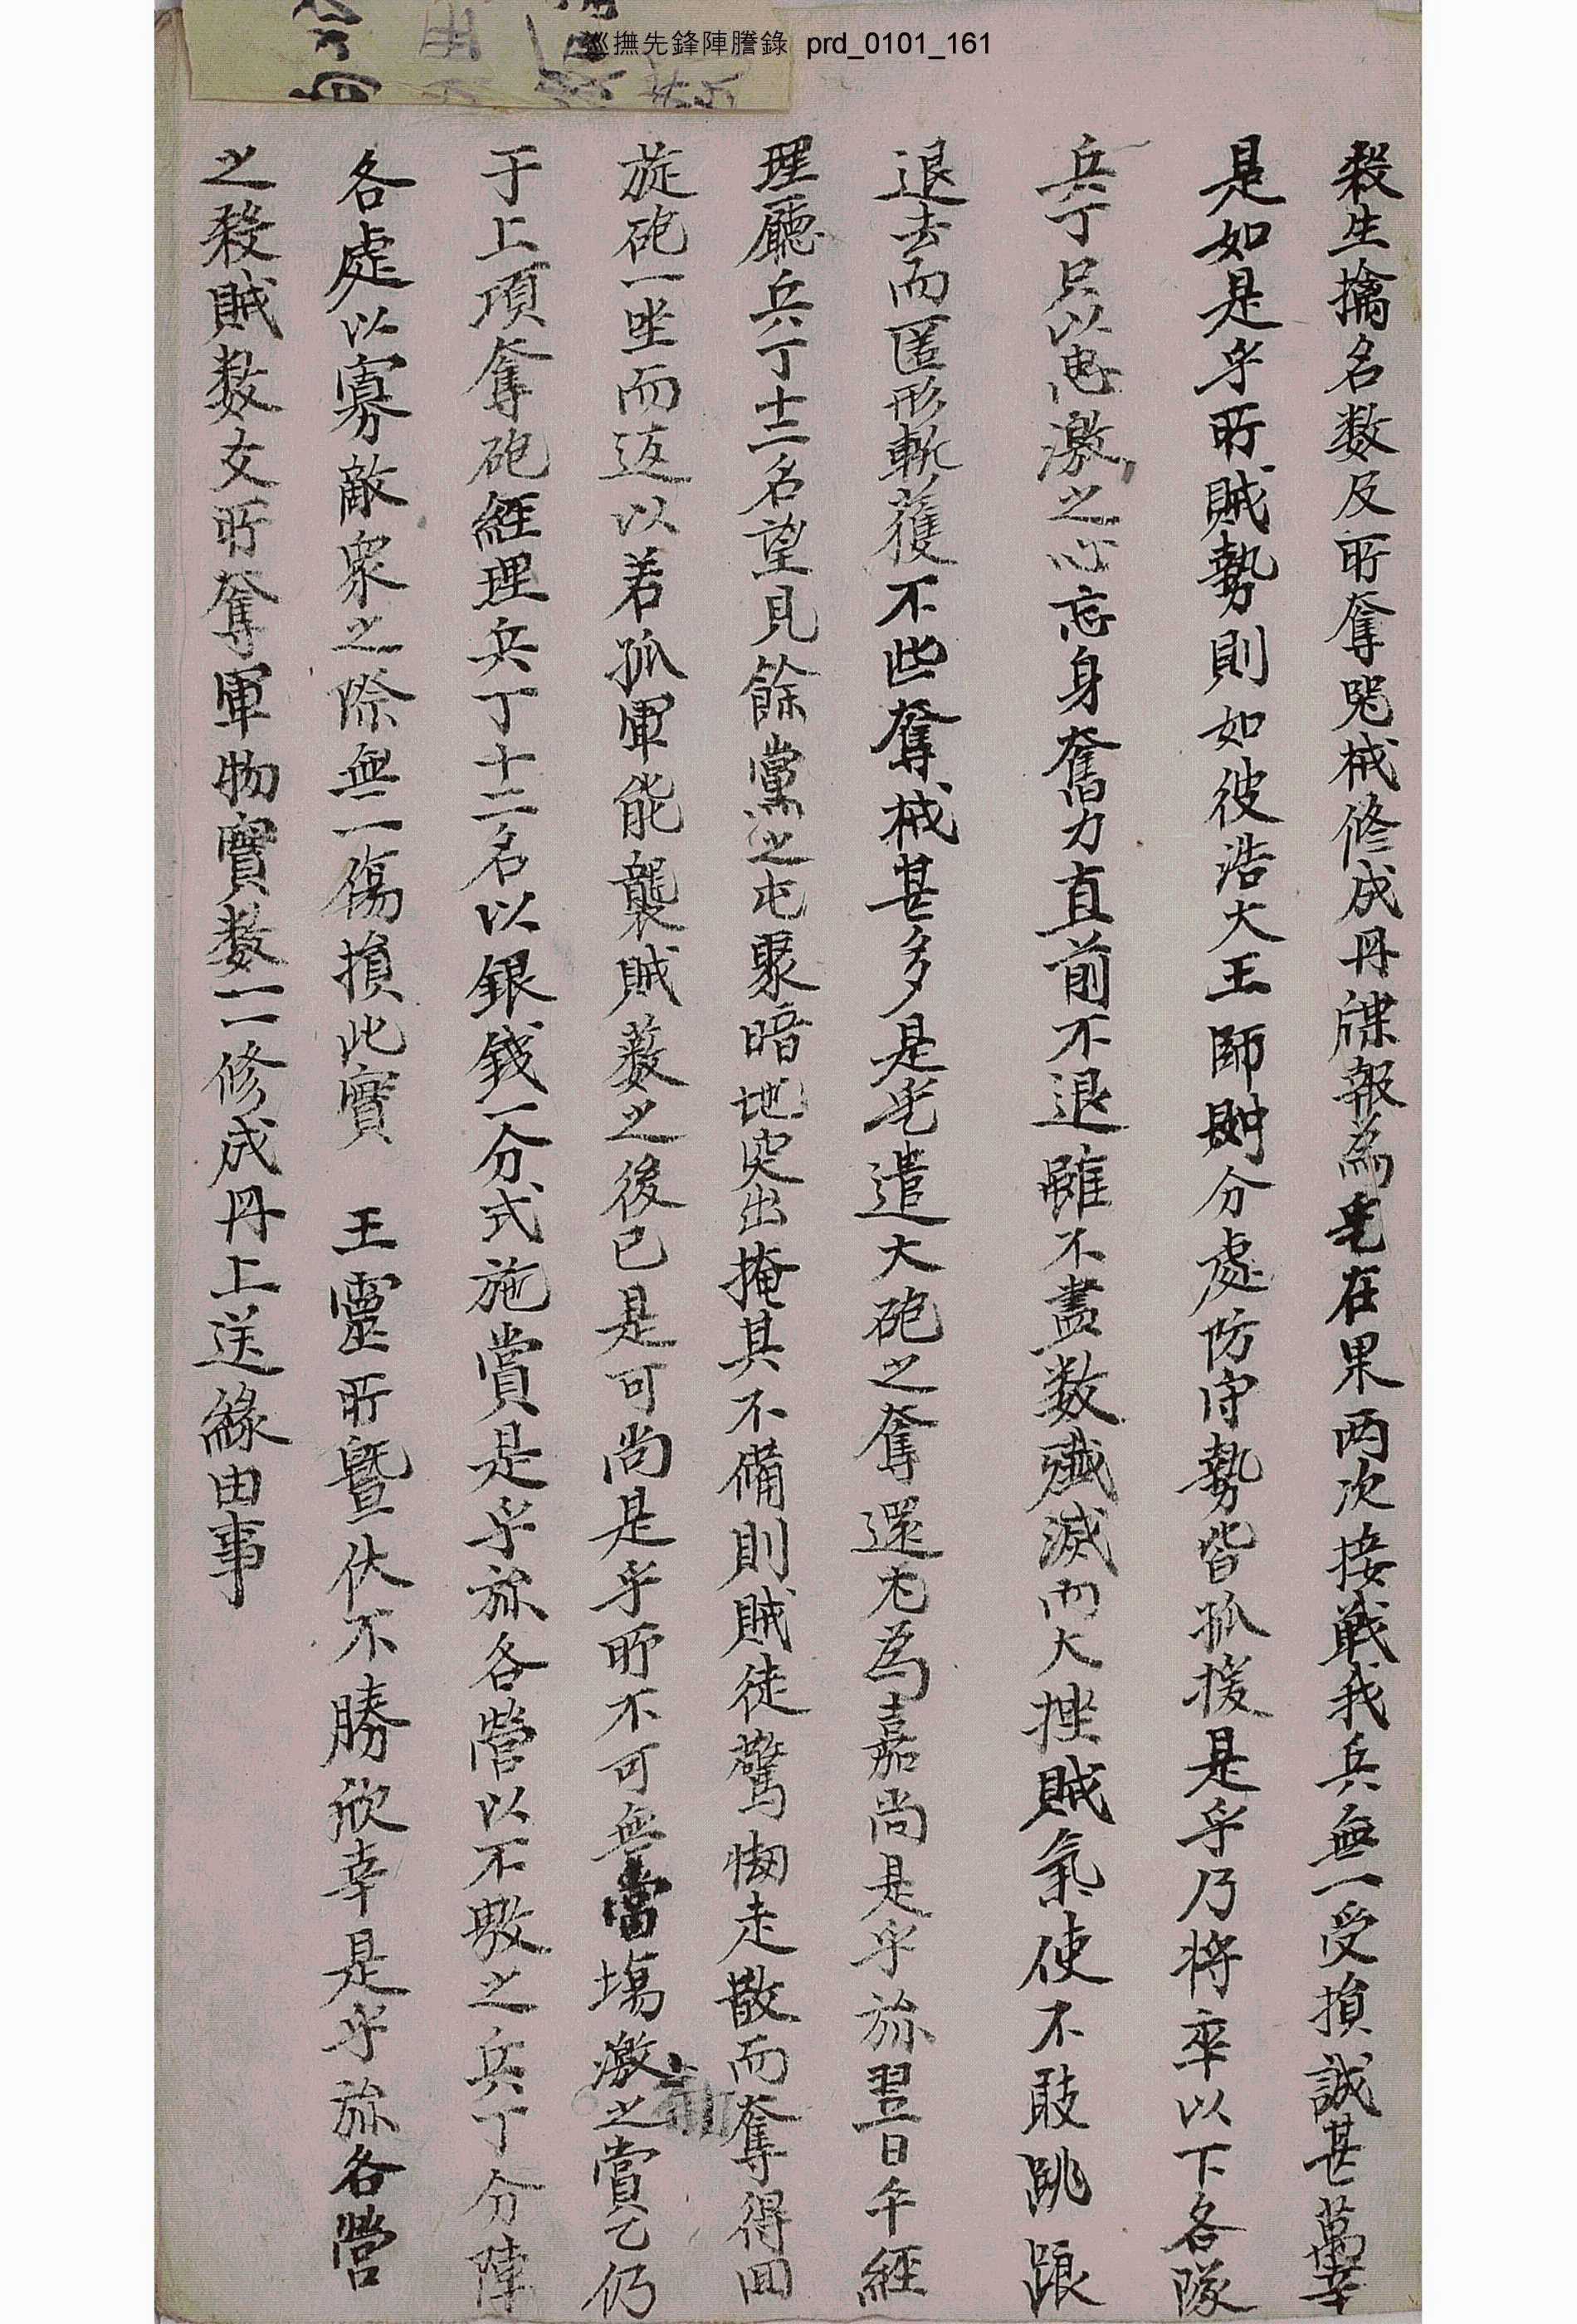 巡撫先鋒陣謄錄 prd_0101_161
殺生擒名数及所奪器械修成冊牒報爲乎在果两次接戰我兵無一受損誠甚萬幸
是如是乎所賊勢則如彼浩大王師則分處防守勢皆孤援是乎乃將卒以下各隊
兵丁只以思激之心忘身奮力直前不退雖不盡数殲滅而大挫賊氣使不敢跳踉
退去而匿形斬獲不些奪械甚多是乎遣大砲之奪還尤爲嘉尚是乎旀翌日午經
理廳兵丁十二名望見餘黨之屯聚暗地突出掩其不備則賊徒驚惻走散而奪得回
旋砲一坐而返以若孤軍能襲賊藪之後已是可尚是乎所不可無當塲激之賞乙仍
于上項奪砲經理兵丁十二名以銀錢一分式施賞是乎旀各營以不敷之兵丁分陣
各處以寡敵衆之際無一傷損此實 王靈所曁伏不勝欣幸是乎旀各營
之殺賊数爻所奪軍物實数一一修成冊上送緣由事